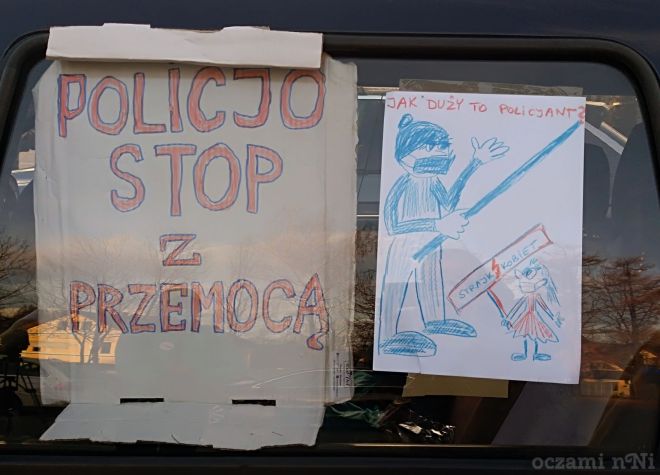 POLICJO
STOP
Z
PRZEMOCĄ
JAK DUŻY TO POLICJANT?
STRAJK KOBIET
oczami nNi